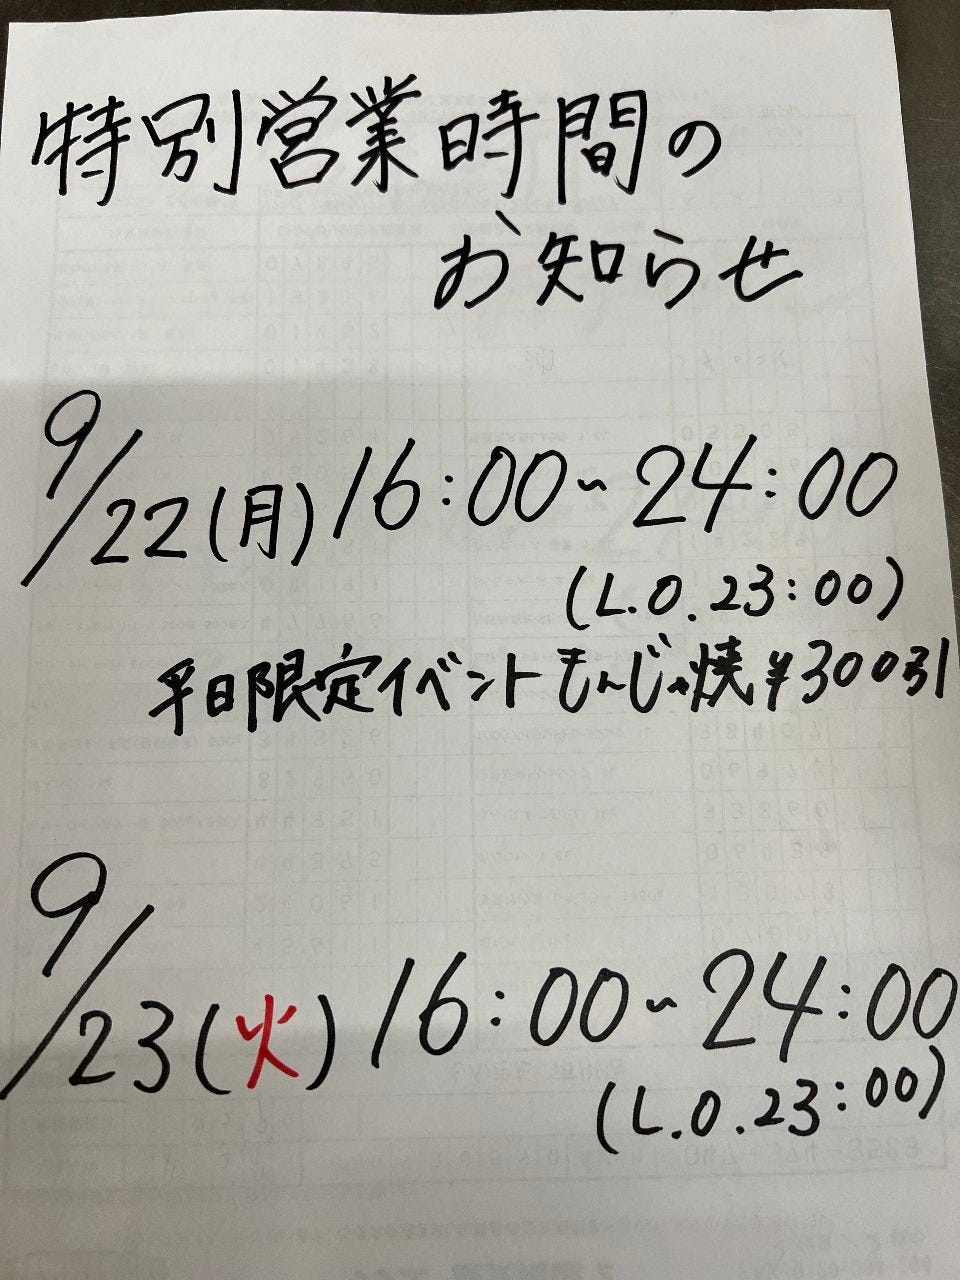 特別営業時間の
お知らせ
9/22(月)16:00~24:00
(L.O.23:00)
平日限定イベントもんじゃ焼¥300引
9/23(火)16:00~24:00
(L.O.23:00)